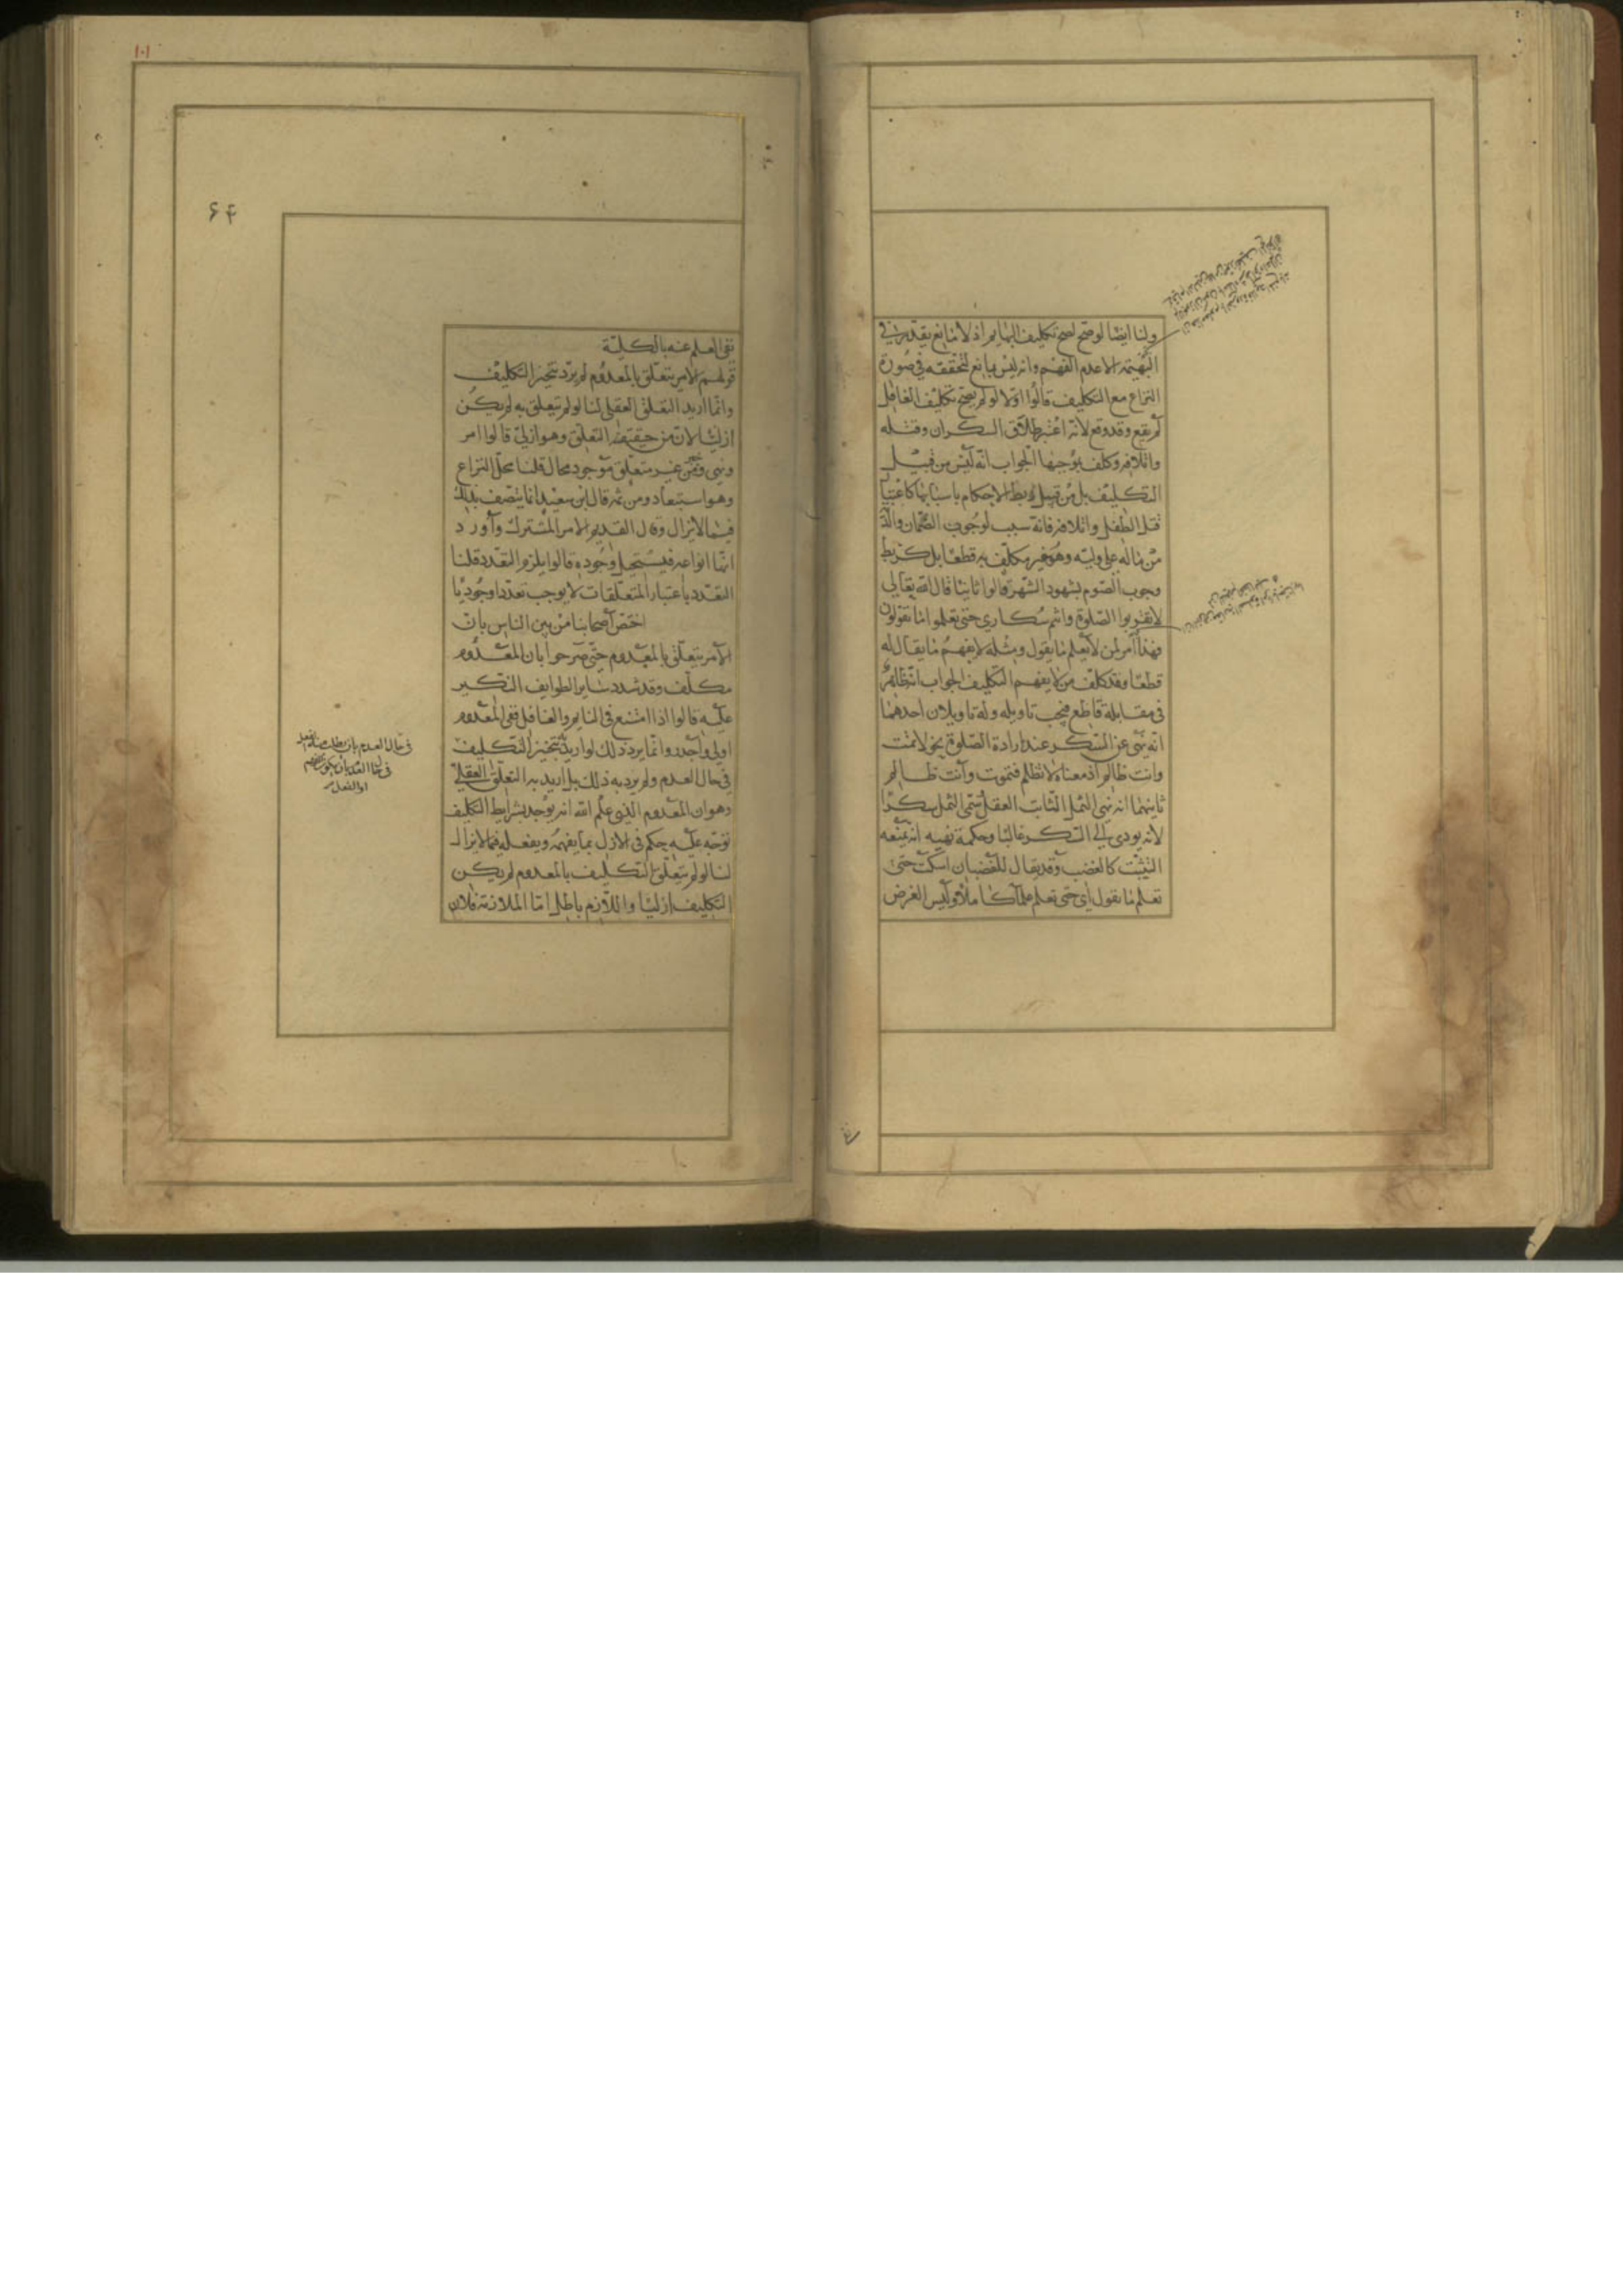 ولنا ايضا لو صح لصح تكليف البهايم اذ لا مانع يقدر في
البهيمة الا عدم الفهم وانه ليس بمانع لتحققه في صورة
النزاع مع التكليف قالوا اولا لو لم يصح تكليف الغافل
لم يقع وقد وقع لانه اعتبر طلاق السكران وقتله
واتلافه وكلف بموجبها الجواب انه ليس من قبيل
التكليف بل من قبيل ربط الاحكام باسبابها كاعتبار
قتل الطفل واتلافه فانه سبب لوجوب الضمان والدية
من ماله على وليه وهو غير مكلف به قطعا بل كربط
وجوب الصوم بشهود الشهر قالوا ثانيا قال الله تعالى
لا تقربوا الصلوة وانتم سكارى حتى تعلموا ما تقولون
فهذا امر لمن لا يعلم ما يقول ومثله لا يفهم ما يقال له
قطعا وقد كلف من لا يفهم التكليف الجواب انه ظاهر
في مقابلة قاطع فيجب تاويله وله تاويلان احدهما
انه نهى عن السكر عند ارادة الصلوة نحو لا تمت
وانت ظالم اذ معناه لا تظلم فتموت وانت ظالم
ثانيهما انه نهى الثمل الثابت العقل سمى الثمل سكرا
لانه يودى الى السكر غالبا وحكمة نهيه انه يمنعه
التثبت كالغضب وقد يقال للغضبان اسكت حتى
تعلم ما تقول اى حتى تعلم علما كاملا وليس الغرض
١٠١
۶۴
نفى العلم عنه بالكلية
قولهم الامر يتعلق بالمعدوم لم يرد تنجيز التكليف
وانما اريد التعلق العقلى لنا لو لم يتعلق به لم يكن
ازليا لان من حقيقته التعلق وهو ازلى قالوا امر
ونهى وخبر من غير متعلق موجود محال قلنا محل النزاع
وهو استبعاد ومن ثم قال ابن سعيد انما يتصف بذلك
فيما لا يزال وقال القديم الامر المشترك واورد
انها انواعه فيستحيل وجوده قالوا يلزم التعدد قلنا
التعدد باعتبار المتعلقات لا يوجب تعددا وجوديا
اختص اصحابنا من بين الناس بان
الامر يتعلق بالمعدوم حتى صرحوا بان المعدوم
مكلف وقد شدد ساير الطوايف النكير
عليه قالوا اذا امتنع في النايم والغافل ففى المعدوم
اولى واجدر وانما يرد ذلك لو اريد به تنجيز التكليف
في حال العدم ولم يرد به ذلك بل اريد به التعلق العقلى
وهو ان المعدوم الذى علم الله انه يوجد بشرايط التكليف
توجه عليه حكم في الازل بما يفهمه ويفعله فيما لا يزال
لنا لو لم يتعلق التكليف بالمعدوم لم يكن
التكليف ازليا واللازم باطل اما الملازمة فلان
في حال العدم بان يطلب منه الفعل
في حال العدم بان يكون الفهم
او الفعل